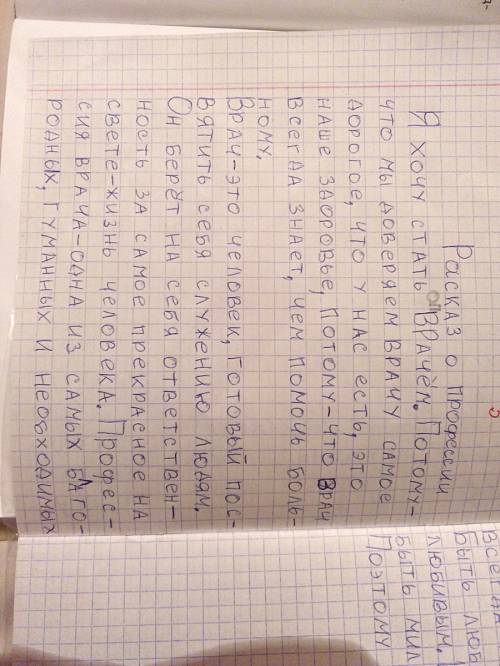 Расказ о профессии
Я хочу стать врачём. Потому-
что мы доверяем врачу самое
дорогое, что у нас есть, это
наше здоровье, потому-что врач
всегда знает, чем помочь боль-
ному.
Врач-это человек, готовый пос-
вятить себя служению людям.
Он берёт на себя ответствен-
ность за самое прекрасное на
свете-жизнь человека. Профес-
сия врача-одна из самых благо-
родных, гуманных и необходимых
быть люб
любивым.
быть мил
Поэтому